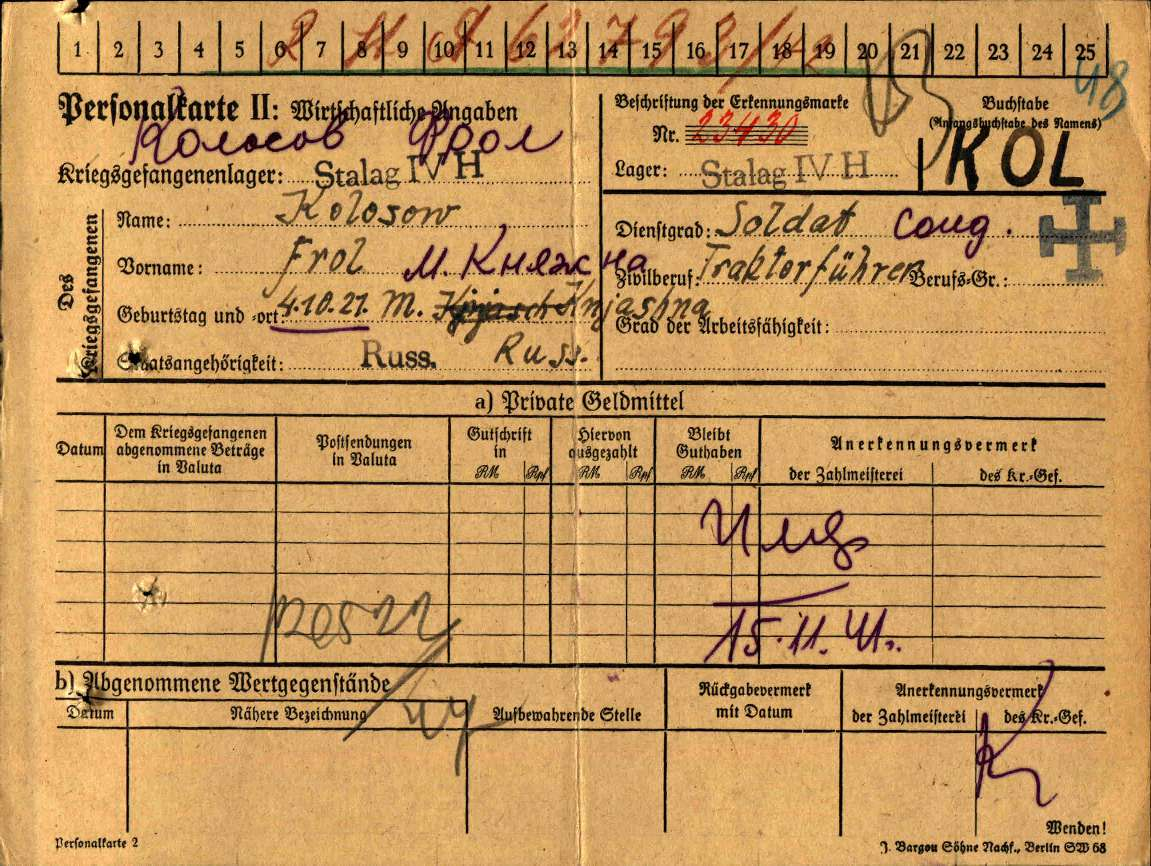 1 2 3 4 5 6 7 8 9 10 11 12 13 14 15 16 17 18 19 20 21 22 23 24 25
48
Personalkarte II: Wirtschaftliche Angaben
Колосов Фрол
Kriegsgefangenenlager: Stalag IV H
Beschriftung der Erkennungsmarke
Nr. 23430
Lager: Stalag IV H
Buchstabe
(Anfangsbuchstabe des Namens)
KOL
Des Kriegsgefangenen
Name: Kolosow
Vorname: Frol М. Княжна
Geburtstag und -ort: 4.10.21. M. Knjashna
Staatsangehörigkeit: Russ. Russ.
Dienstgrad: Soldat солд.
Zivilberuf: Traktorführer Berufs-Gr.:
Grad der Arbeitsfähigkeit:
a) Private Geldmittel
Datum
Dem Kriegsgefangenen abgenommene Beträge in Valuta
Postsendungen in Valuta
Gutschrift in
RM Rpf
Hiervon ausgezahlt
RM Rpf
Bleibt Guthaben
RM Rpf
Anerkennungsvermerk
der Zahlmeisterei
des Kr.-Gef.
15.11.41.
b) Abgenommene Wertgegenstände
Datum
Nähere Bezeichnung
Aufbewahrende Stelle
Rückgabevermerk mit Datum
Anerkennungsvermerk
der Zahlmeisterei
des Kr.-Gef.
Wenden!
Personalkarte 2
J. Bargou Söhne Nachf., Berlin SW 68